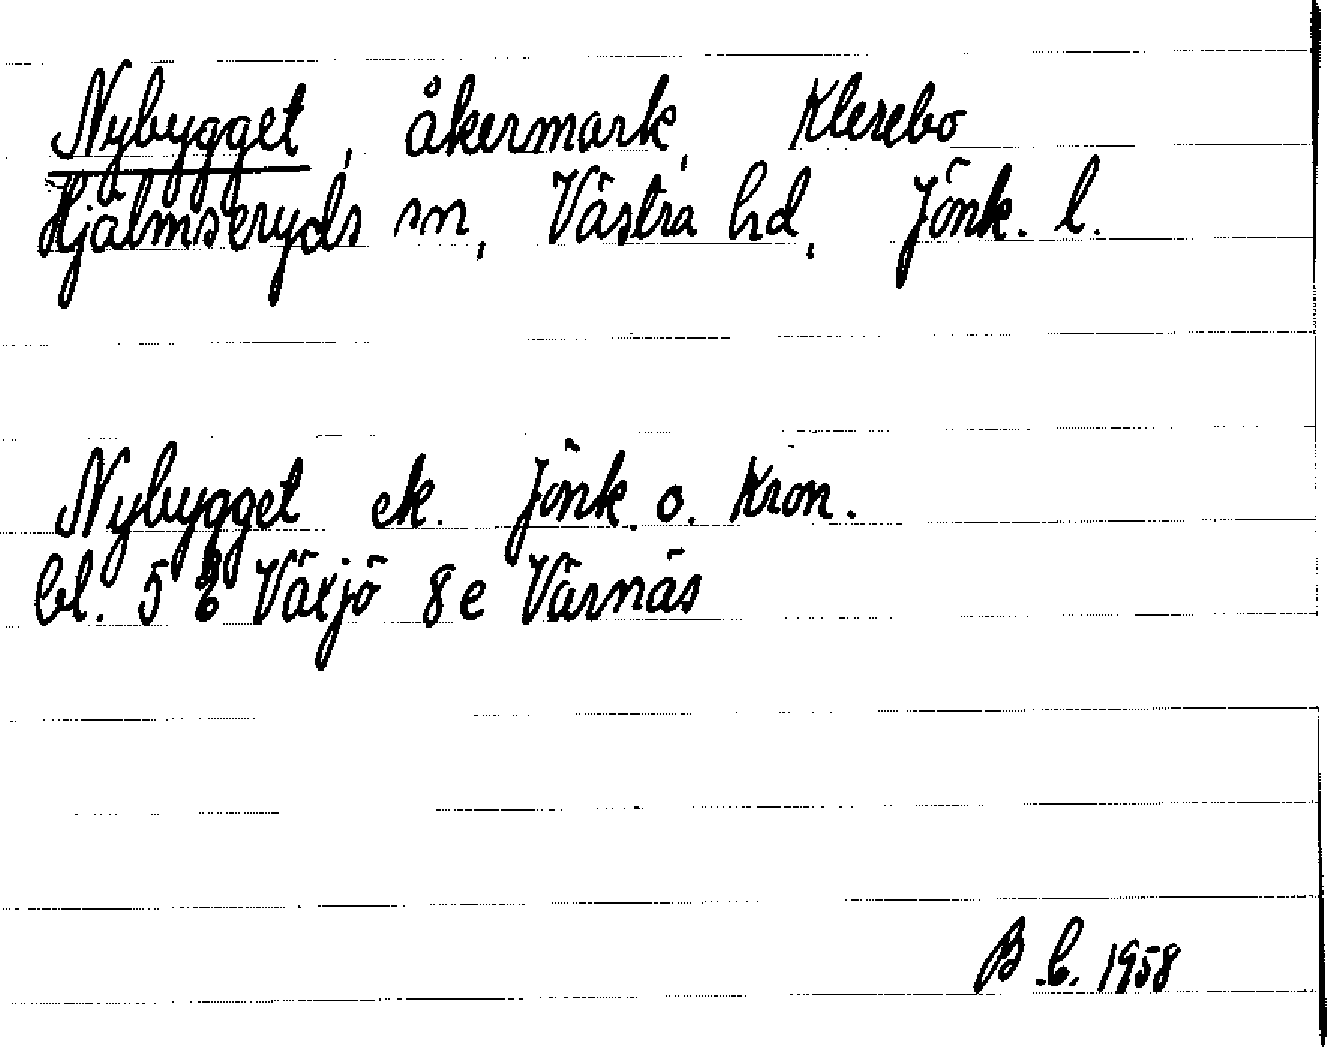 Nybygget, åkermark, Klerebo
Hjälmseryds sn, Västra hd, Jönk. l.
Nybygget ek. Jönk. o. Kron.
bl. 5 E Växjö 8e Värnäs
B.L. 1958